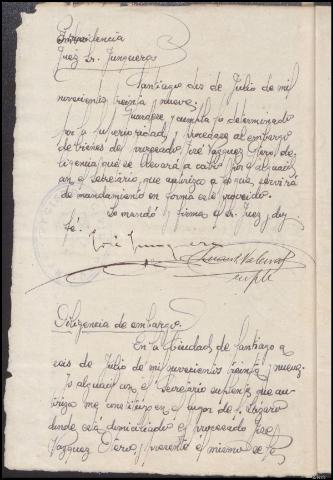 Providencia
Juez Sr. Junquera
Santiago dos de Julio de mil
novecientos treinta y nueve.
Guardese y cumpla lo determinado
por la superioridad, y procedase al embargo
de bienes del procesado José Vazquez Otero, di-
ligencia que se llevará a cabo por el alguacil
con el Secretario que autoriza a que servirá
de mandamiento en forma este proveido.
Lo mandó y firma el Sr. Juez, doy
fé.
José Junquera
Diligencia de embargo.
En la Ciudad de Santiago a
seis de Julio de mil novecientos treinta y nueve
yo alguacil con el Secretario suplente que au-
toriza me constituí en el lugar de S. Lázaro
donde está domiciliado el procesado José
Vazquez Otero, y presente el mismo se le